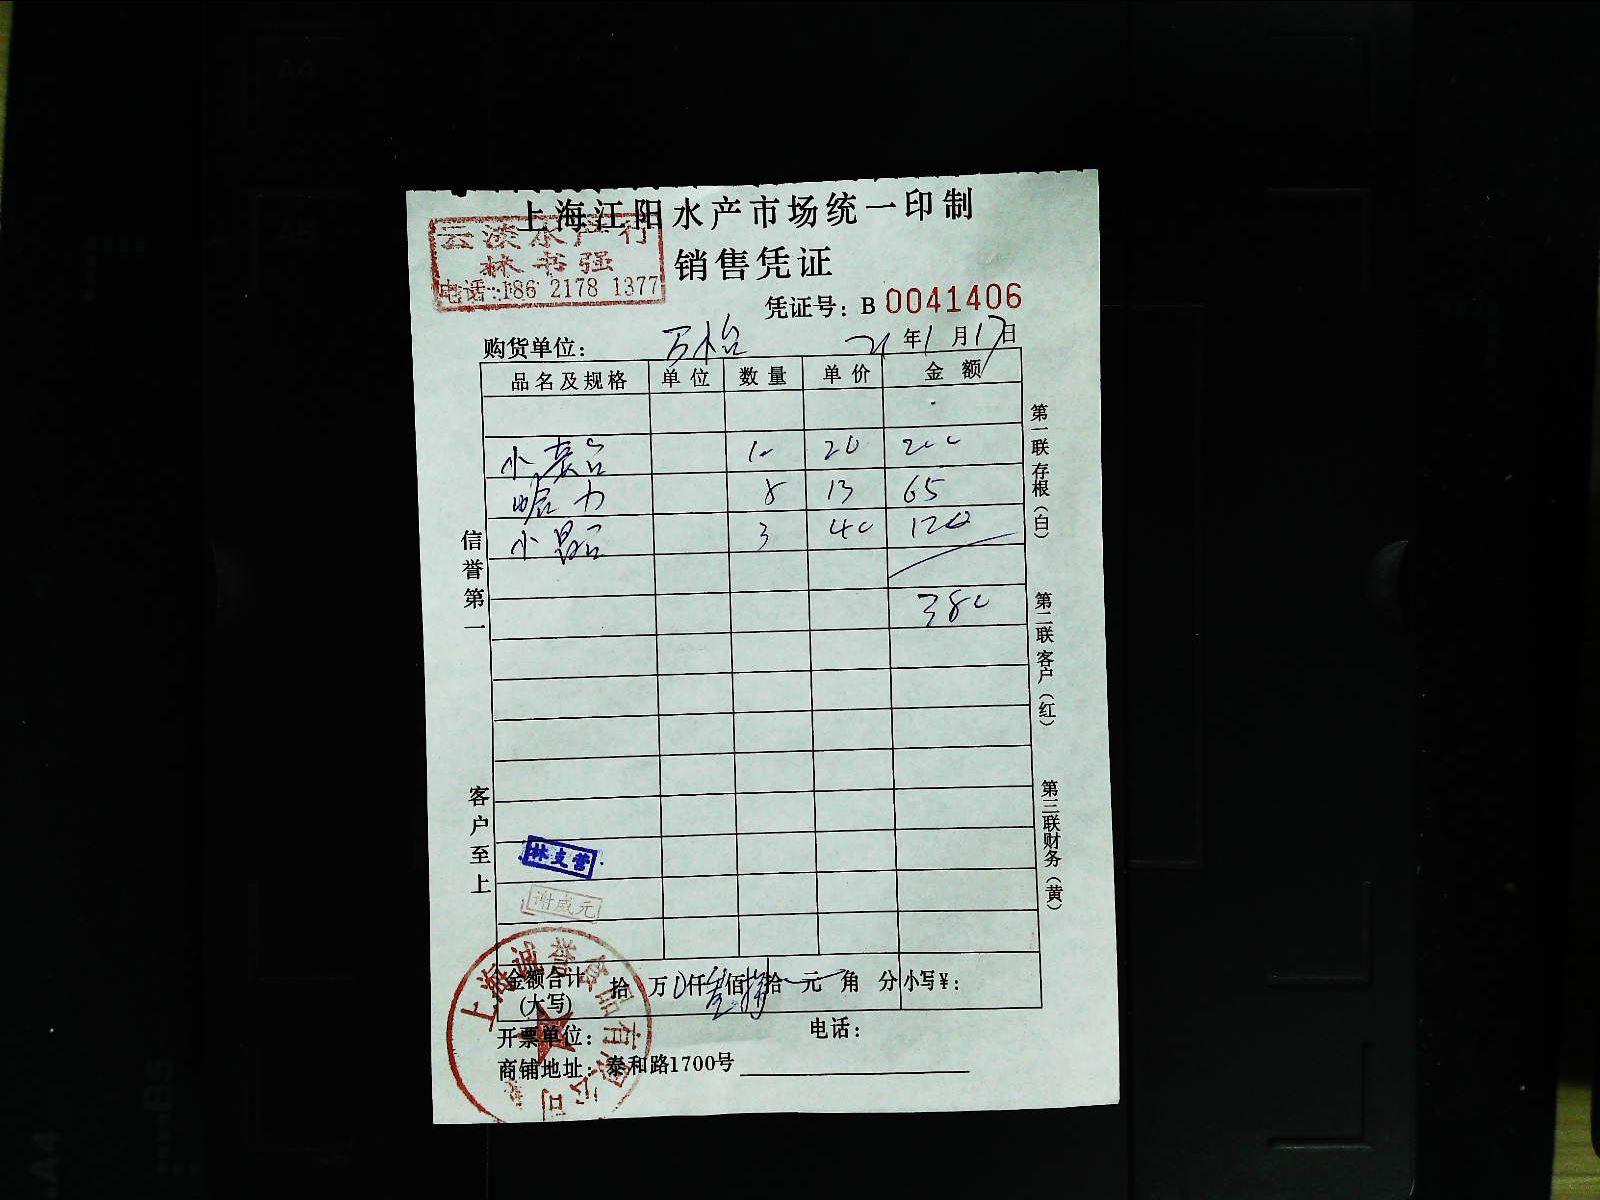 上海江阳水产市场统一印制
云淡水产行
林书强
电话:186 2178 1377
销售凭证
凭证号：B 0041406
购货单位： 万 21 年 1 月 17 日
品名及规格 单位 数量 单价 金额
小 10 20 200
蛤力 8 13 65
小 3 40 120
380
信誉第一
客户至上
第一联存根（白）
第二联客户（红）
第三联财务（黄）
林支营
谢威元
上海诚誉食品有限公司
金额合计 拾 万 0 仟 叁 佰 捌 拾 元 角 分 小写¥：
(大写)
开票单位： 电话：
商铺地址：泰和路1700号